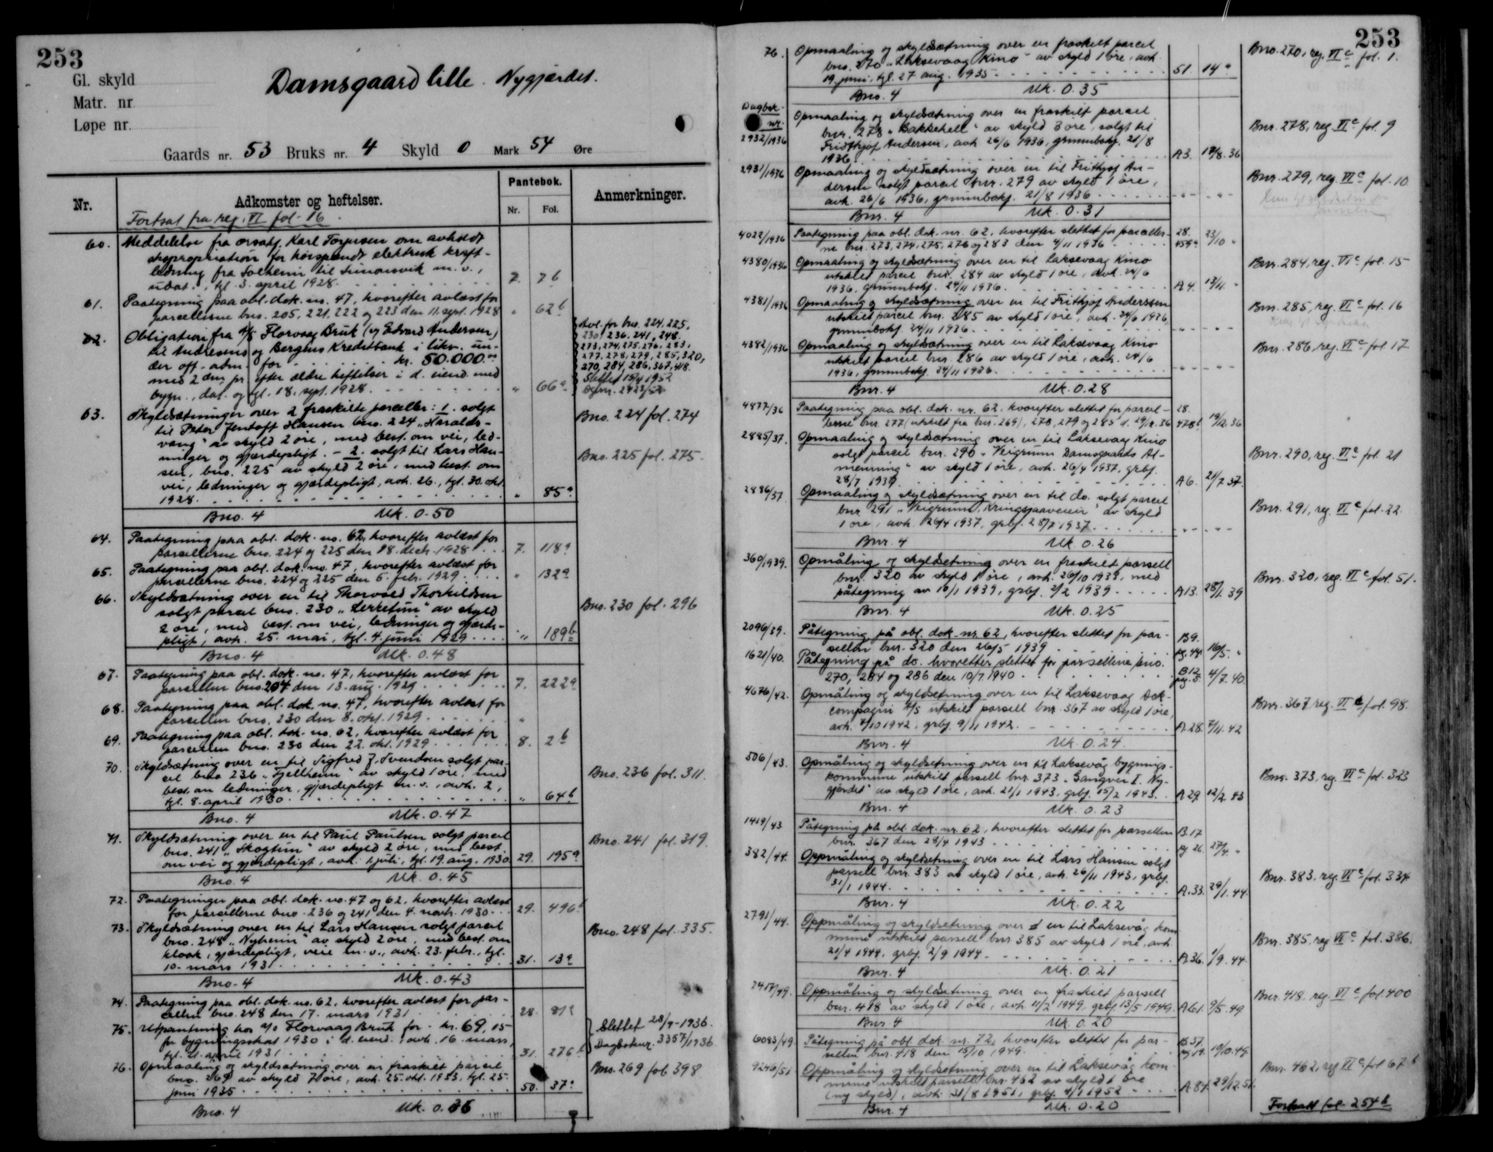 253
Gl. skyld
Matr. nr.
Løpe nr.
Damsgaard lille. Nygjærdet.
Gaards nr. 53 Bruks nr. 4 Skyld 0 Mark 54 Øre
Nr.
Adkomster og heftelser.
Pantebok.
Nr. Fol.
Anmerkninger.
Fortsat fra reg. VI fol. 16.
60. Meddelelse fra orsakf. Karl Torjusen om avholdt
ekspropriation for høispændt elektrisk kraft-
ledning fra Solheim til Simonsvik m. v.,
tgl. 3. april 1928. 7. 76
61. Paategning paa obl. dok. no. 47, hvorefter avløst for
parsellerne bno. 205, 221, 222 og 223 den 11. sept. 1928 " 62b
62. Obligation fra A/S Florvaag Bruk (og Edvard Andersen)
til Andresens og Bergens Kreditbank i likv. un-
der off. adm. for kr. 50.000.00
med 2 den pr. efter ældre heftelser i d. eiend. med
bygn., dat. og tgl. 18. sept. 1928. " 66a
Avl. for bno. 224, 225,
230, 236, 241, 248.
273, 274, 275, 276, 283,
277, 278, 279, 285, 320,
270, 284, 286, 367, 418.
63. Skyldsætninger over 2 fraskilte parceller: 1. solgt
til Peter Jentoft Hansen bno. 224 "Haralds-
vang" av skyld 2 øre, med best. om vei, led-
ninger og gjærdepligt. - 2. solgt til Lars Han-
sen, bno. 225 av skyld 2 øre, med best. om
vei, ledninger og gjærdepligt, avh. 26., tgl. 30. okt.
1928. " 85a
Bno. 224 fol. 274
Bno. 225 fol. 275.
Bno. 4 Mk. 0.50
64. Paategning paa obl. dok. no. 62, hvorefter avløst for
parsellerne bno. 224 og 225 den 18. decb. 1928. 7. 118a
65. Paategning paa obl. dok. no. 47, hvorefter avløst for
parsellerne bno. 224 og 225 den 5. febr. 1929. " 132a
66. Skyldsætning over en til Thorvald Thorkildsen
solgt parcel bno. 230 "Lerretun" av skyld
2 øre, med best. om vei, ledninger og gjærde-
pligt, avh. 25. mai, tgl. 4. juni 1929. " 189b
Bno. 230 fol. 296
Bno. 4 Mk. 0.48
67. Paategning paa obl. dok. no. 47, hvorefter avløst for
parsellen bno. 204 den 13. aug. 1929. 7. 222a
68. Paategning paa obl. dok. no. 47, hvorefter avløst for
parsellen bno. 230 den 8. okt. 1929.
69. Paategning paa obl. dok. no. 62, hvorefter avløst for
parsellen bno. 230 den 22. okt. 1929. 8. 2b
70. Skyldsætning over en til Sigfred J. Svendsen solgt par-
cel bno. 236 "Fjellheim" av skyld 1 øre, med
best. om ledninger, gjærdepligt m. v., avh. 2.,
tgl. 8. april 1930. " 64b
Bno. 236 fol. 311.
Bno. 4 Mk. 0.47
71. Skyldsætning over en til Paul Paulsen solgt parcel
bno. 241 "Skogtun" av skyld 2 øre, med best.
om vei og gjærdepligt, avh. 1. juli, tgl. 19. aug. 1930. 29. 195a
Bno. 241 fol. 319.
Bno. 4 Mk. 0.45
72. Paategninger paa obl. dok. no. 47 og 62, hvorefter avløst
for parsellerne bno. 236 og 241 den 4. novb. 1930. 29. 496b
73. Skyldsætning over en til Lars Hansen solgt parcel
bno. 248 "Nyheim" av skyld 2 øre, med best. om
kloak, gjærdepligt, veie m. v., avh. 23. febr., tgl.
10. mars 1931. 31. 13a
Bno. 248 fol. 335.
Bno. 4 Mk. 0.43
74. Paategning paa obl. dok. no. 62, hvorefter avløst for par-
sellen bno. 248 den 17. mars 1931. 28. 81a
75. Utpantning hos A/S Florvaag Bruk for kr. 69.15
for bygningsskat 1930 i d. eiend., avh. 16. mars,
tgl. 21. april 1931. 31. 276b
Slettet 28/9-1936.
Dagboknr. 3357/1936
76. Opmaaling og skyldsætning over en fraskilt parcel
bno. 269 av skyld 7 øre, avh. 25. okt. 1933, tgl. 25.
juni 1935. 50. 37a
Bno. 269 fol. 398
Bno. 4 Mk. 0.36
253
76. Opmaaling og skyldsætning over en fraskilt parcel
bno. 270 "Laksevaag Kino" av skyld 1 øre, avh.
19. juni, tgl. 27. aug. 1935. 51. 14a
Bno. 270, reg. VIc fol. 1.
Bno. 4 Mk. 0.35
Dagbok
nr.
2932/1936 Opmaaling og skyldsætning over en fraskilt parcel
bnr. 278 "Bakkehell" av skyld 3 øre, solgt til
Fridthjof Andersen, avh. 26/6 1936, grunnboksf. 21/8
1936. A3. 19/8.36
Bnr. 278, reg. VIc fol. 9
2931/1936 Opmaaling og skyldsætning over en til Frithjof An-
dersen solgt parcel bnr. 279 av skyld 1 øre,
avh. 26/6 1936, grunnboksf. 21/8 1936
Bnr. 279, reg. VIc fol. 10
Bnr. 4 Mk. 0.31
4022/1936 Paategning paa obl. dok. nr. 62, hvorefter slettet for parceller-
ne bnr. 273, 274, 275, 276 og 283 den 4/11 1936
4380/1936 Opmaaling og skyldsætning over en til Laksevaag Kino
utskilt parcel bnr. 284 av skyld 1 øre, avh. 24/6
1936, grunnboksf. 24/11 1936. A4.
Bnr. 284, reg. VIc fol. 15
4381/1936 Opmaaling og skyldsætning over en til Frithjof Anderssen
utskilt parcel bnr. 285 av skyld 1 øre, avh. 24/6 1936,
grunnboksf. 24/11 1936.
Bnr. 285, reg. VIc fol. 16
4382/1936 Opmaaling og skyldsætning over en til Laksevaag Kino
utskilt parcel bnr. 286 av skyld 1 øre, avh. 24/6
1936, grunnboksf. 24/11 1936.
Bnr. 286, reg. VIc fol. 17
Bnr. 4 Mk. 0.28
4477/36 Paategning paa obl. dok. nr. 62, hvorefter slettet for parcel-
lene bnr. 277 (utskilt fra bnr. 269), 278, 279 og 285 d. 29/12 36
2885/37. Opmaaling og skyldsætning over en til Laksevaag Kino
solgt parcel bnr. 290 "Reigrunn Damsgaards Al-
menning" av skyld 1 øre, avh. 26/4 1937, grbf.
28/7 1937. A6. 24/7 37.
Bnr. 290, reg. VIc fol. 21
2886/37. Opmaaling og skyldsætning over en til do. solgt parcel
bnr. 291 "Veigrunn Kringsjaaveien" av skyld
1 øre, avh. 26/4 1937, grbf. 28/7 1937.
Bnr. 291, reg. VIc fol. 22
Bnr. 4 Mk. 0.26
360/1939. Opmåling og skyldsetning over en fraskilt parsell
bnr. 320 av skyld 1 øre, avh. 20/10 1938, med
påtegning av 16/1 1939, grbf. 2/2 1939. A13. 28/1.39
Bnr. 320, reg. VIc fol. 51.
Bnr. 4 Mk. 0.25
2096/39. Påtegning på obl. dok. nr. 62, hvorefter slettet for par-
sellen bnr. 320 den 26/5 1939. B9.
1621/40. Påtegning på do. hvoretter slettet for parsellene bno.
270, 284 og 286 den 10/7 1940. B12. 4/7.40
4676/42. Opmåling og skyldsetning over en til Laksevaag Dok-
compagni A/S utskilt parsell bnr. 367 av skyld 1 øre,
avh. 9/10 1942, grbf. 9/11 1942. A28. 5/11.42
Bnr. 367 reg. VIc fol. 98.
Bnr. 4 Mk. 0.24.
506/43. Opmåling og skyldsetning over en til Laksevåg bygnings-
kommune utskilt parsell bnr. 373 "Sangveie I. Ny-
gjærdet" av skyld 1 øre, avh. 21/1 1943, grbf. 15/2 1943. A29. 12/2.43
Bnr. 373, reg. VIc fol. 323
Bnr. 4 Mk. 0.23
1419/43 Påtegning på obl. dok. nr. 62, hvorefter slettet for parsellen
bnr. 367 den 29/4 1943. B17
382/44. Oppmåling og skyldsetning over en til Lars Hansen solgt
parsell bnr. 383 av skyld 1 øre, avh. 29/11 1943, grbf.
31/1 1944. A33. 29/1.44.
Bnr. 383. reg. VIc fol. 334
Bnr. 4 Mk. 0.22
2791/44. Oppmåling og skyldsetning over en til Laksevåg kom-
mune utskilt parsell bnr. 385 av skyld 1 øre, avh.
21/4 1944, grbf. 2/9 1944. A36. 1/9.44.
Bnr. 385, reg. VIc fol. 336.
Bnr. 4 Mk. 0.21
2417/49. Oppmåling og skyldsetning over en fraskilt parsell
bnr. 418 av skyld 1 øre, avh. 11/2 1949, grbf. 13/5 1949. A61. 9/5.49
Bnr. 418. reg. VIc fol. 400
Bnr. 4 Mk. 0.20
6083/49. Påtegning på obl. dok. nr. 72, hvorefter slettet for par-
sellen bnr. 418 den 19/10 1949. B37. 19/10.49.
9246/51 Oppmåling og skyldsetning over en til Laksevåg kom-
mune utskilt parsell bnr. 462 av skyld 1 øre
(ny skyld), avh. 31/8 1951, grbf. 4/1 1952. A87. 29/12.51.
Bnr. 462, reg. VIc fol. 67b
Bnr. 4 Mk. 0.20
Fortsatt fol. 254b